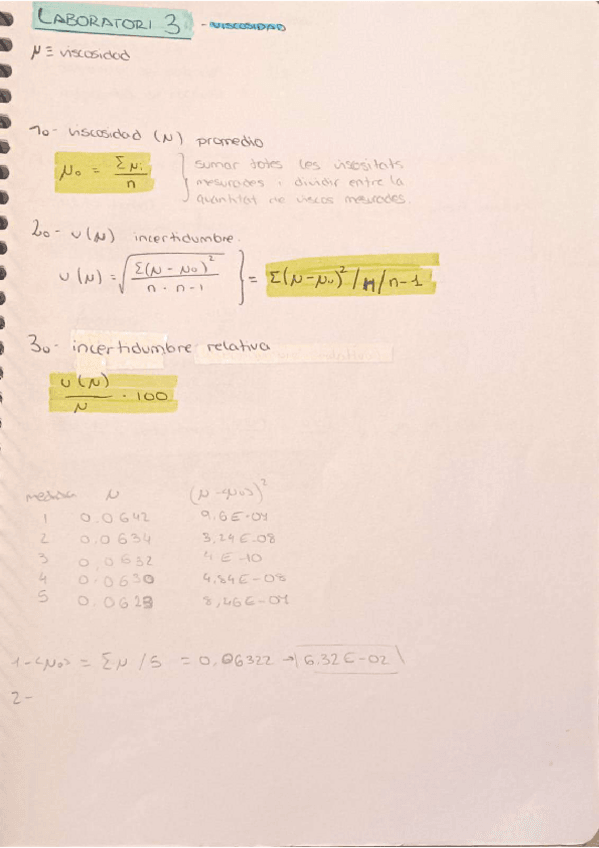 LABORATORI 3 - VISCOSIDAD
μ ≡ viscosidad
1o- viscosidad (μ) promedio
μ₀ = Σμi / n } sumar totes les viscositats
mesurades i dividir entre la
quantitat de viscos mesurades.
2o- u(μ) incertidumbre.
u(μ) = √(Σ(μ-μ₀)² / n · n-1) } = Σ(μ-μ₀)²/n/n-1
3o- incertidumbre relativa
u(μ) / μ · 100
medida μ (μ-<μ₀>)²
1 0.0642 9.6E-07
2 0.0634 3,24E-08
3 0.0632 4E-10
4 0.0630 4,84E-08
5 0.0623 8,46E-07
1-<μ₀> = Σμ/5 = 0,06322 → 6.32E-02
2-